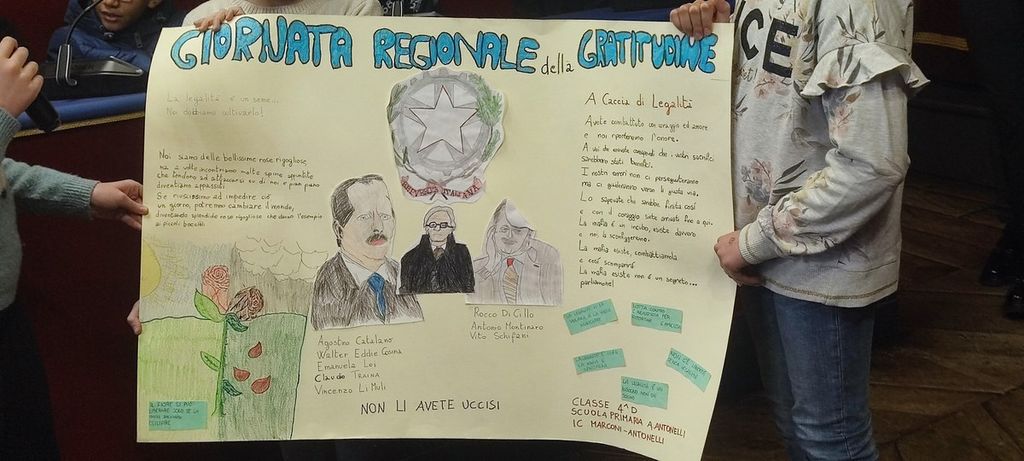 GIORNATA REGIONALE della GRATITUDINE
La legalità è un seme...
Noi dobbiamo coltivarlo!
Noi siamo delle bellissime rose rigogliose,
ma a volte incontriamo molte spine appuntite
che tendono ad attaccarsi su di noi e pian piano
diventiamo appassiti.
Se riusciamo ad impedire ciò
un giorno, potremo cambiare il mondo,
diventando splendide rose rigogliose che danno l'esempio
ai piccoli boccioli
REPVBBLICA ITALIANA
Agostino Catalano
Walter Eddie Cosina
Emanuela Loi
Claudio TRAINA
Vincenzo Li Muli
Rocco Di Cillo
Antonio Montinaro
Vito Schifani
NON LI AVETE UCCISI
A Caccia di Legalità
Avete combattuto con coraggio ed amore
e noi riporteremo l'onore.
A voi che avevate compreso che i vostri sacrifici
sarebbero stati benefici.
I nostri errori non ci perseguiteranno
ma ci guideranno verso la giusta via.
Lo sapevate che sarebbe finita così
e con il coraggio siete arrivati fino a qui.
La mafia è un incubo, esiste davvero
e noi la sconfiggeremo.
La mafia esiste, combattiamola
e così scomparirà
La mafia esiste non è un segreto...
parliamone!
LA LEGALITÀ È UN
BISOGNO NON UN
SOGNO
CLASSE 4^D
SCUOLA PRIMARIA A.ANTONELLI
IC MARCONI-ANTONELLI
CE